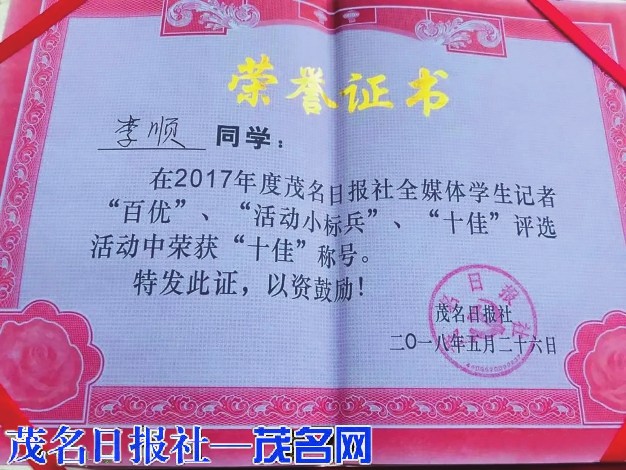 荣誉证书
李顺 同学：
在2017年度茂名日报社全媒体学生记者
“百优”、“活动小标兵”、“十佳”评选
活动中荣获“十佳”称号。
特发此证，以资鼓励！
茂名日报社
二〇一八年五月二十六日
茂名日报社
茂名日报社—茂名网